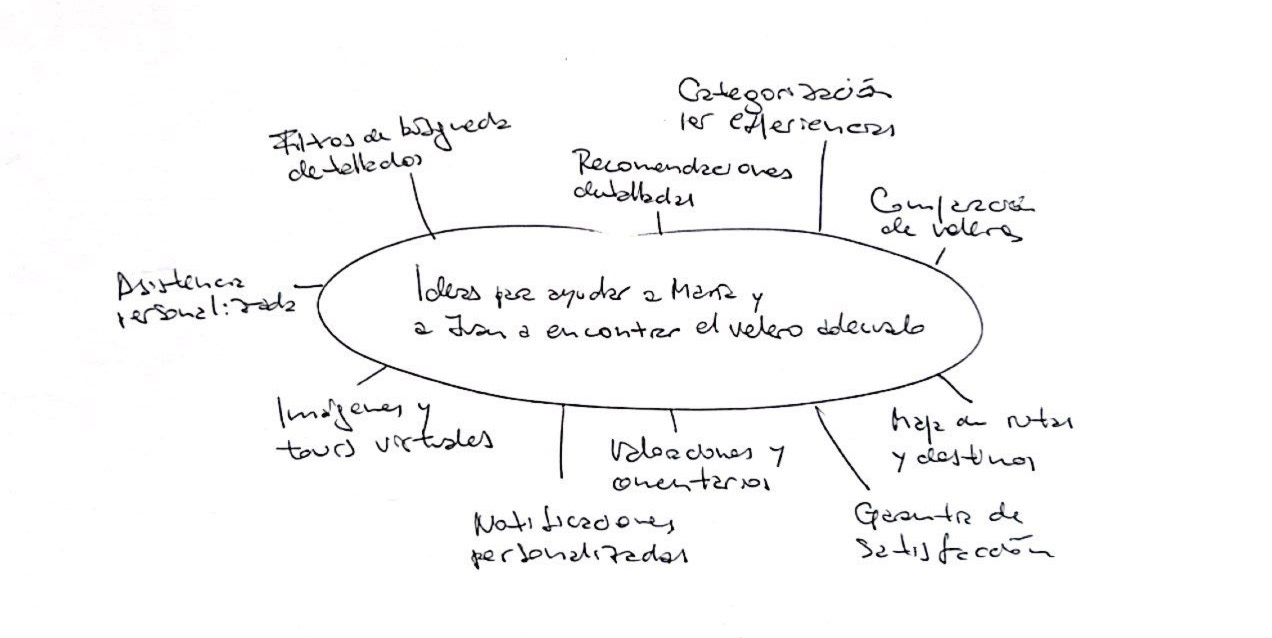 Categorización
per experiencias
Filtros de búsqueda
detallados
Recomendaciones
detalladas
Comparación
de veleros
Asistencia
personalizada
Ideas para ayudar a María y
a Juan a encontrar el velero adecuado
Imágenes y
tours virtuales
Valoraciones y
comentarios
Mapa de rutas
y destinos
Notificaciones
personalizadas
Garantía de
satisfacción